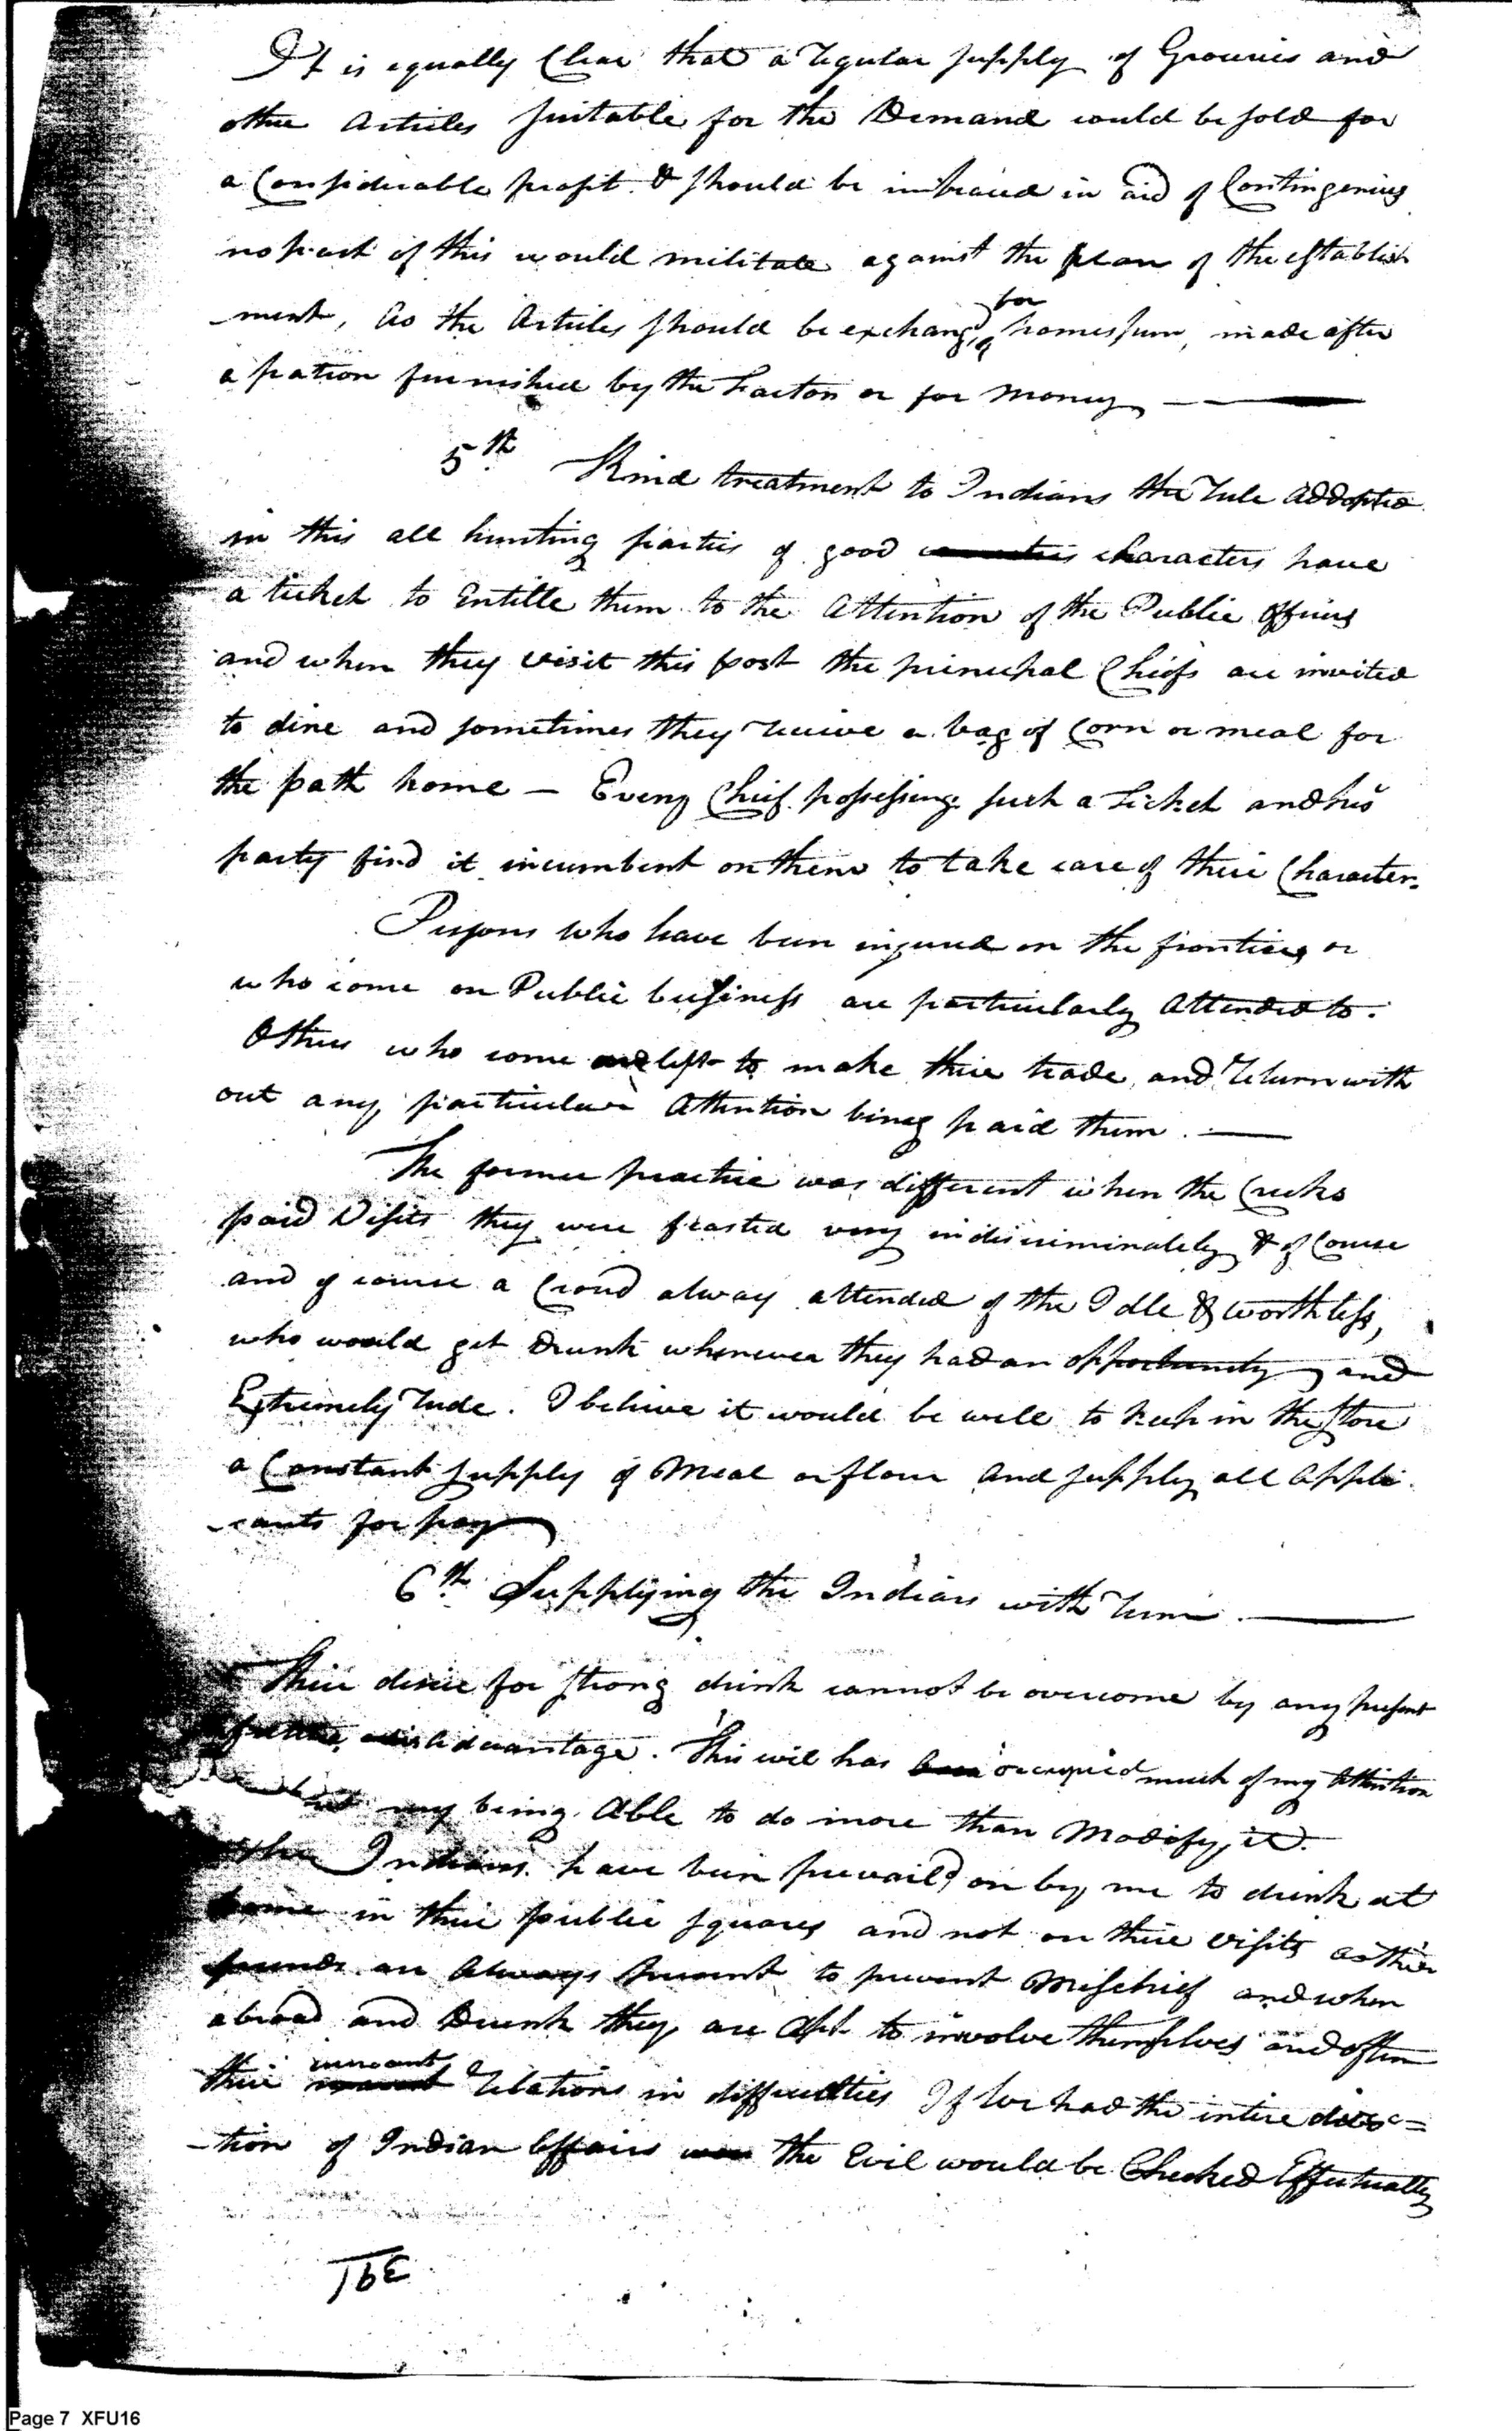 It is equally Clear that a regular supply of Groceries and
other Articles suitable for the Demand would be sold for
a Considerable profit & should be imbraced in aid of Contingencies
no part of this would militate against the plan of the establish
-ment, as the Articles should be exchang'd for homespun, made after
a pattron furnished by the Factor or for money
5th Kind treatment to Indians the rule addopted
in this all hunting parties of good characters have
a ticket to Entitle them to the Attention of the Public officers
and when they visit this post the principal Chiefs are invited
to dine and sometimes they receive a bag of Corn or meal for
the path home — Every Chief possessing such a ticket and his
party find it incumbent on them to take care of their Character.
Persons who have been injured on the frontiers or
who come on Public business are particularly Attended to.
Others who come are left to make their trade, and return with
out any particular Attention being paid them. —
The former practice was different when the Creeks
paid Visits they were feasted very indiscriminately & of Course
and of course a Croud alway attended of the Idle & worthless,
who would get Drunk whenever they had an opportunity and
Extremely rude. I believe it would be well to keep in the Store
a Constant supply of Meal or flour and supply all appli
-cants for pay
6th Supplying the Indians with rum. —
Their desire for strong drink cannot be overcome by any present
future advantage. This evil has occupied much of my Attention
my being Able to do more than Modify it.
The Indians have been prevail'd on by me to drink at
home in their public squares and not on their visits as their
friends are Always present to prevent Mischief and when
abroad and Drunk they are apt to involve themselves and often
their innocent relations in difficulties If we had the intire direc=
-tion of Indian Affairs the Evil would be Checked Effectually
391
Page 7 XFU16